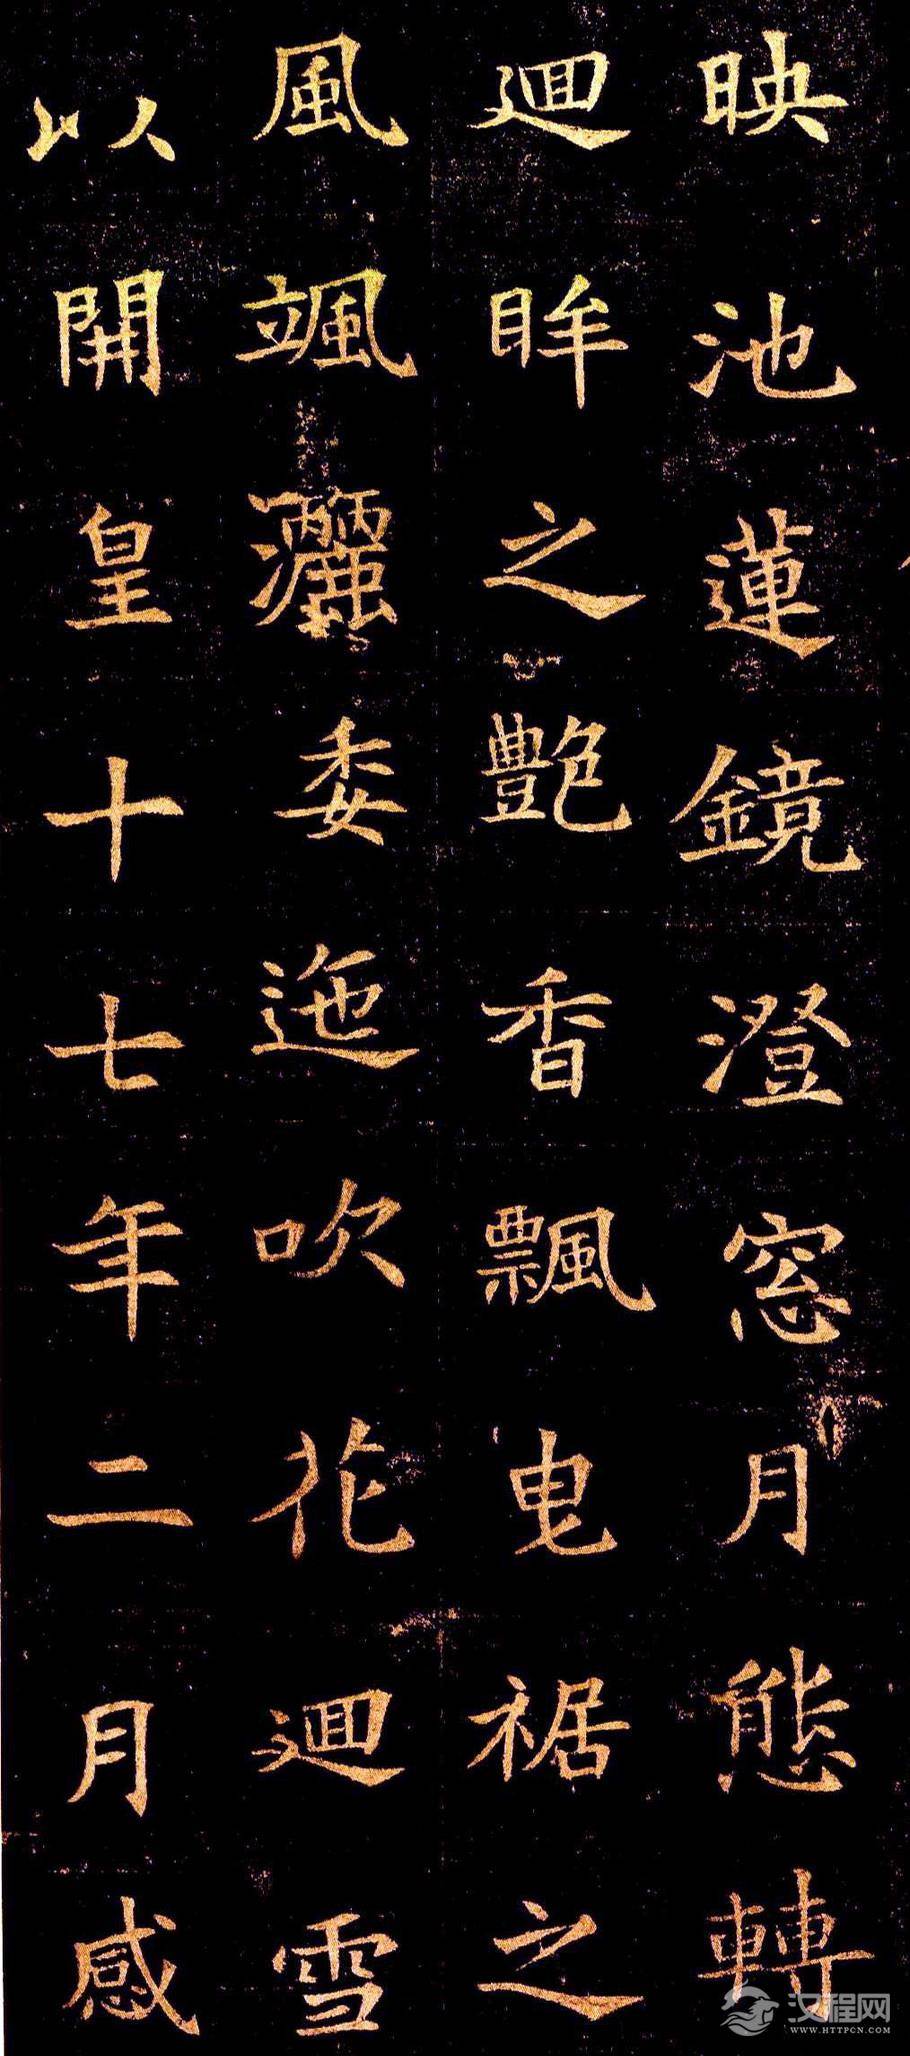 映池蓮鏡澄窓月態轉
迴眸之艷香飄曳裾之
風颯灑委迤吹花迴雪
以開皇十七年二月感
汉程网
WWW.HTTPCN.COM